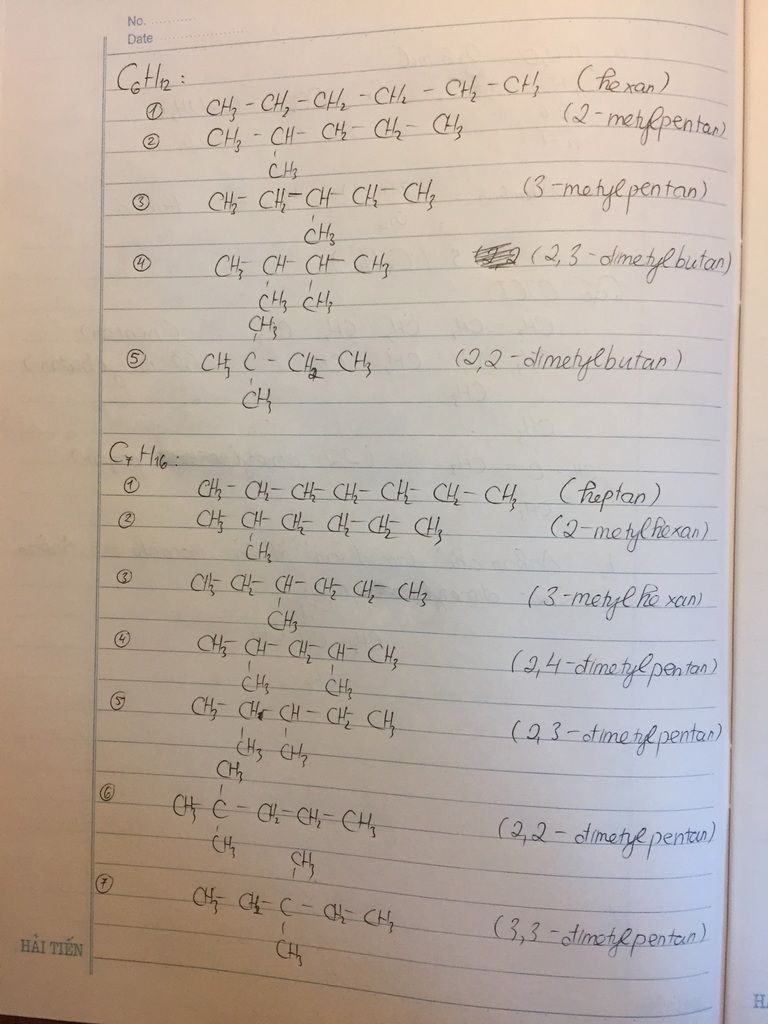 No.
Date
C6H12:
① CH3 - CH2 - CH2 - CH2 - CH2 - CH3 (hexan)
② CH3 - CH - CH2 - CH2 - CH3 (2-metylpentan)
CH3
③ CH3 - CH2 - CH - CH2 - CH3 (3-metylpentan)
CH3
④ CH3 - CH - CH - CH3 (2,3-dimetylbutan)
CH3 CH3
CH3
⑤ CH3 C - CH2 - CH3 (2,2-dimetylbutan)
CH3
C7H16:
① CH3 - CH2 - CH2 - CH2 - CH2 - CH2 - CH3 (heptan)
② CH3 - CH - CH2 - CH2 - CH2 - CH3 (2-metylhexan)
CH3
③ CH3 - CH2 - CH - CH2 - CH2 - CH3 (3-metylhexan)
CH3
④ CH3 - CH - CH2 - CH - CH3 (2,4-dimetylpentan)
CH3 CH3
⑤ CH3 - CH - CH - CH2 - CH3 (2,3-dimetylpentan)
CH3 CH3
CH3
⑥ CH3 - C - CH2 - CH2 - CH3 (2,2-dimetylpentan)
CH3
CH3
⑦ CH3 - CH2 - C - CH2 - CH3 (3,3-dimetylpentan)
CH3
HẢI TIẾN